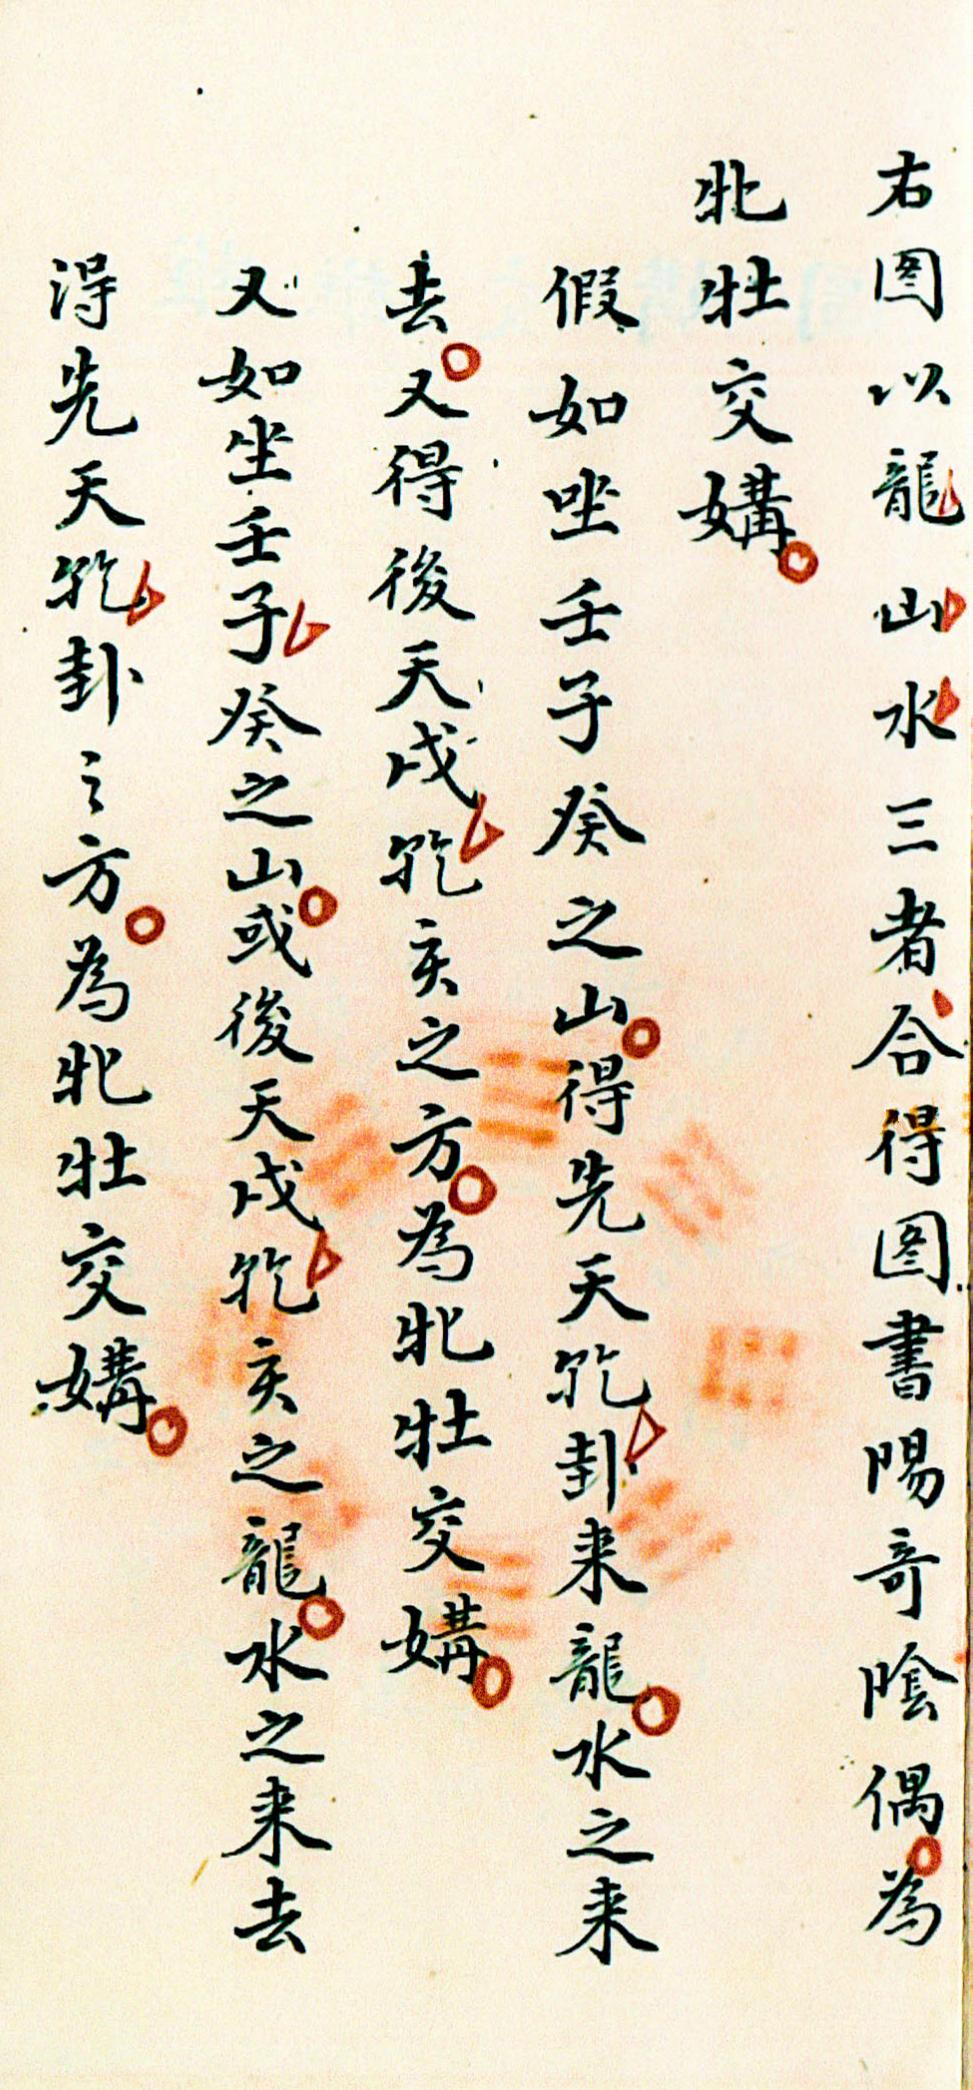 右図以龍山水三者合得図書陽奇陰偶為
牝牡交媾
假如坐壬子癸之山得先天乾卦来龍水之来
去又得後天戌乾亥之方為牝牡交媾
又如坐壬子癸之山或後天戌乾亥之龍水之来去
得先天乾卦之方為牝牡交媾